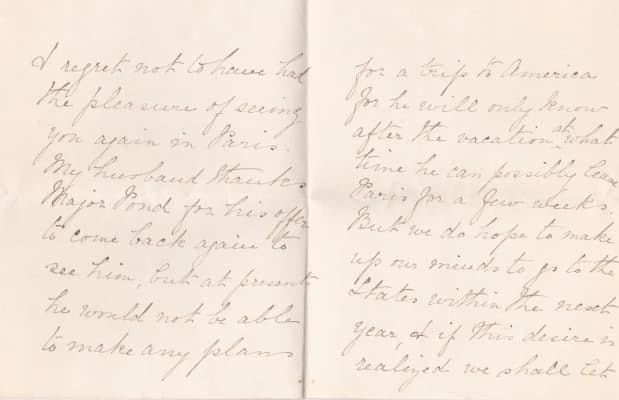 I regret not to have had
the pleasure of seeing
you again in Paris.
My husband thanks
Major Pond for his offer
to come back again to
see him, but at present
he would not be able
to make any plans
for a trip to America
for he will only know
after the vacation at what
time he can possibly leave
Paris for a few weeks.
But we do hope to make
up our minds to go to the
States within the next
year, & if this desire is
realized we shall let